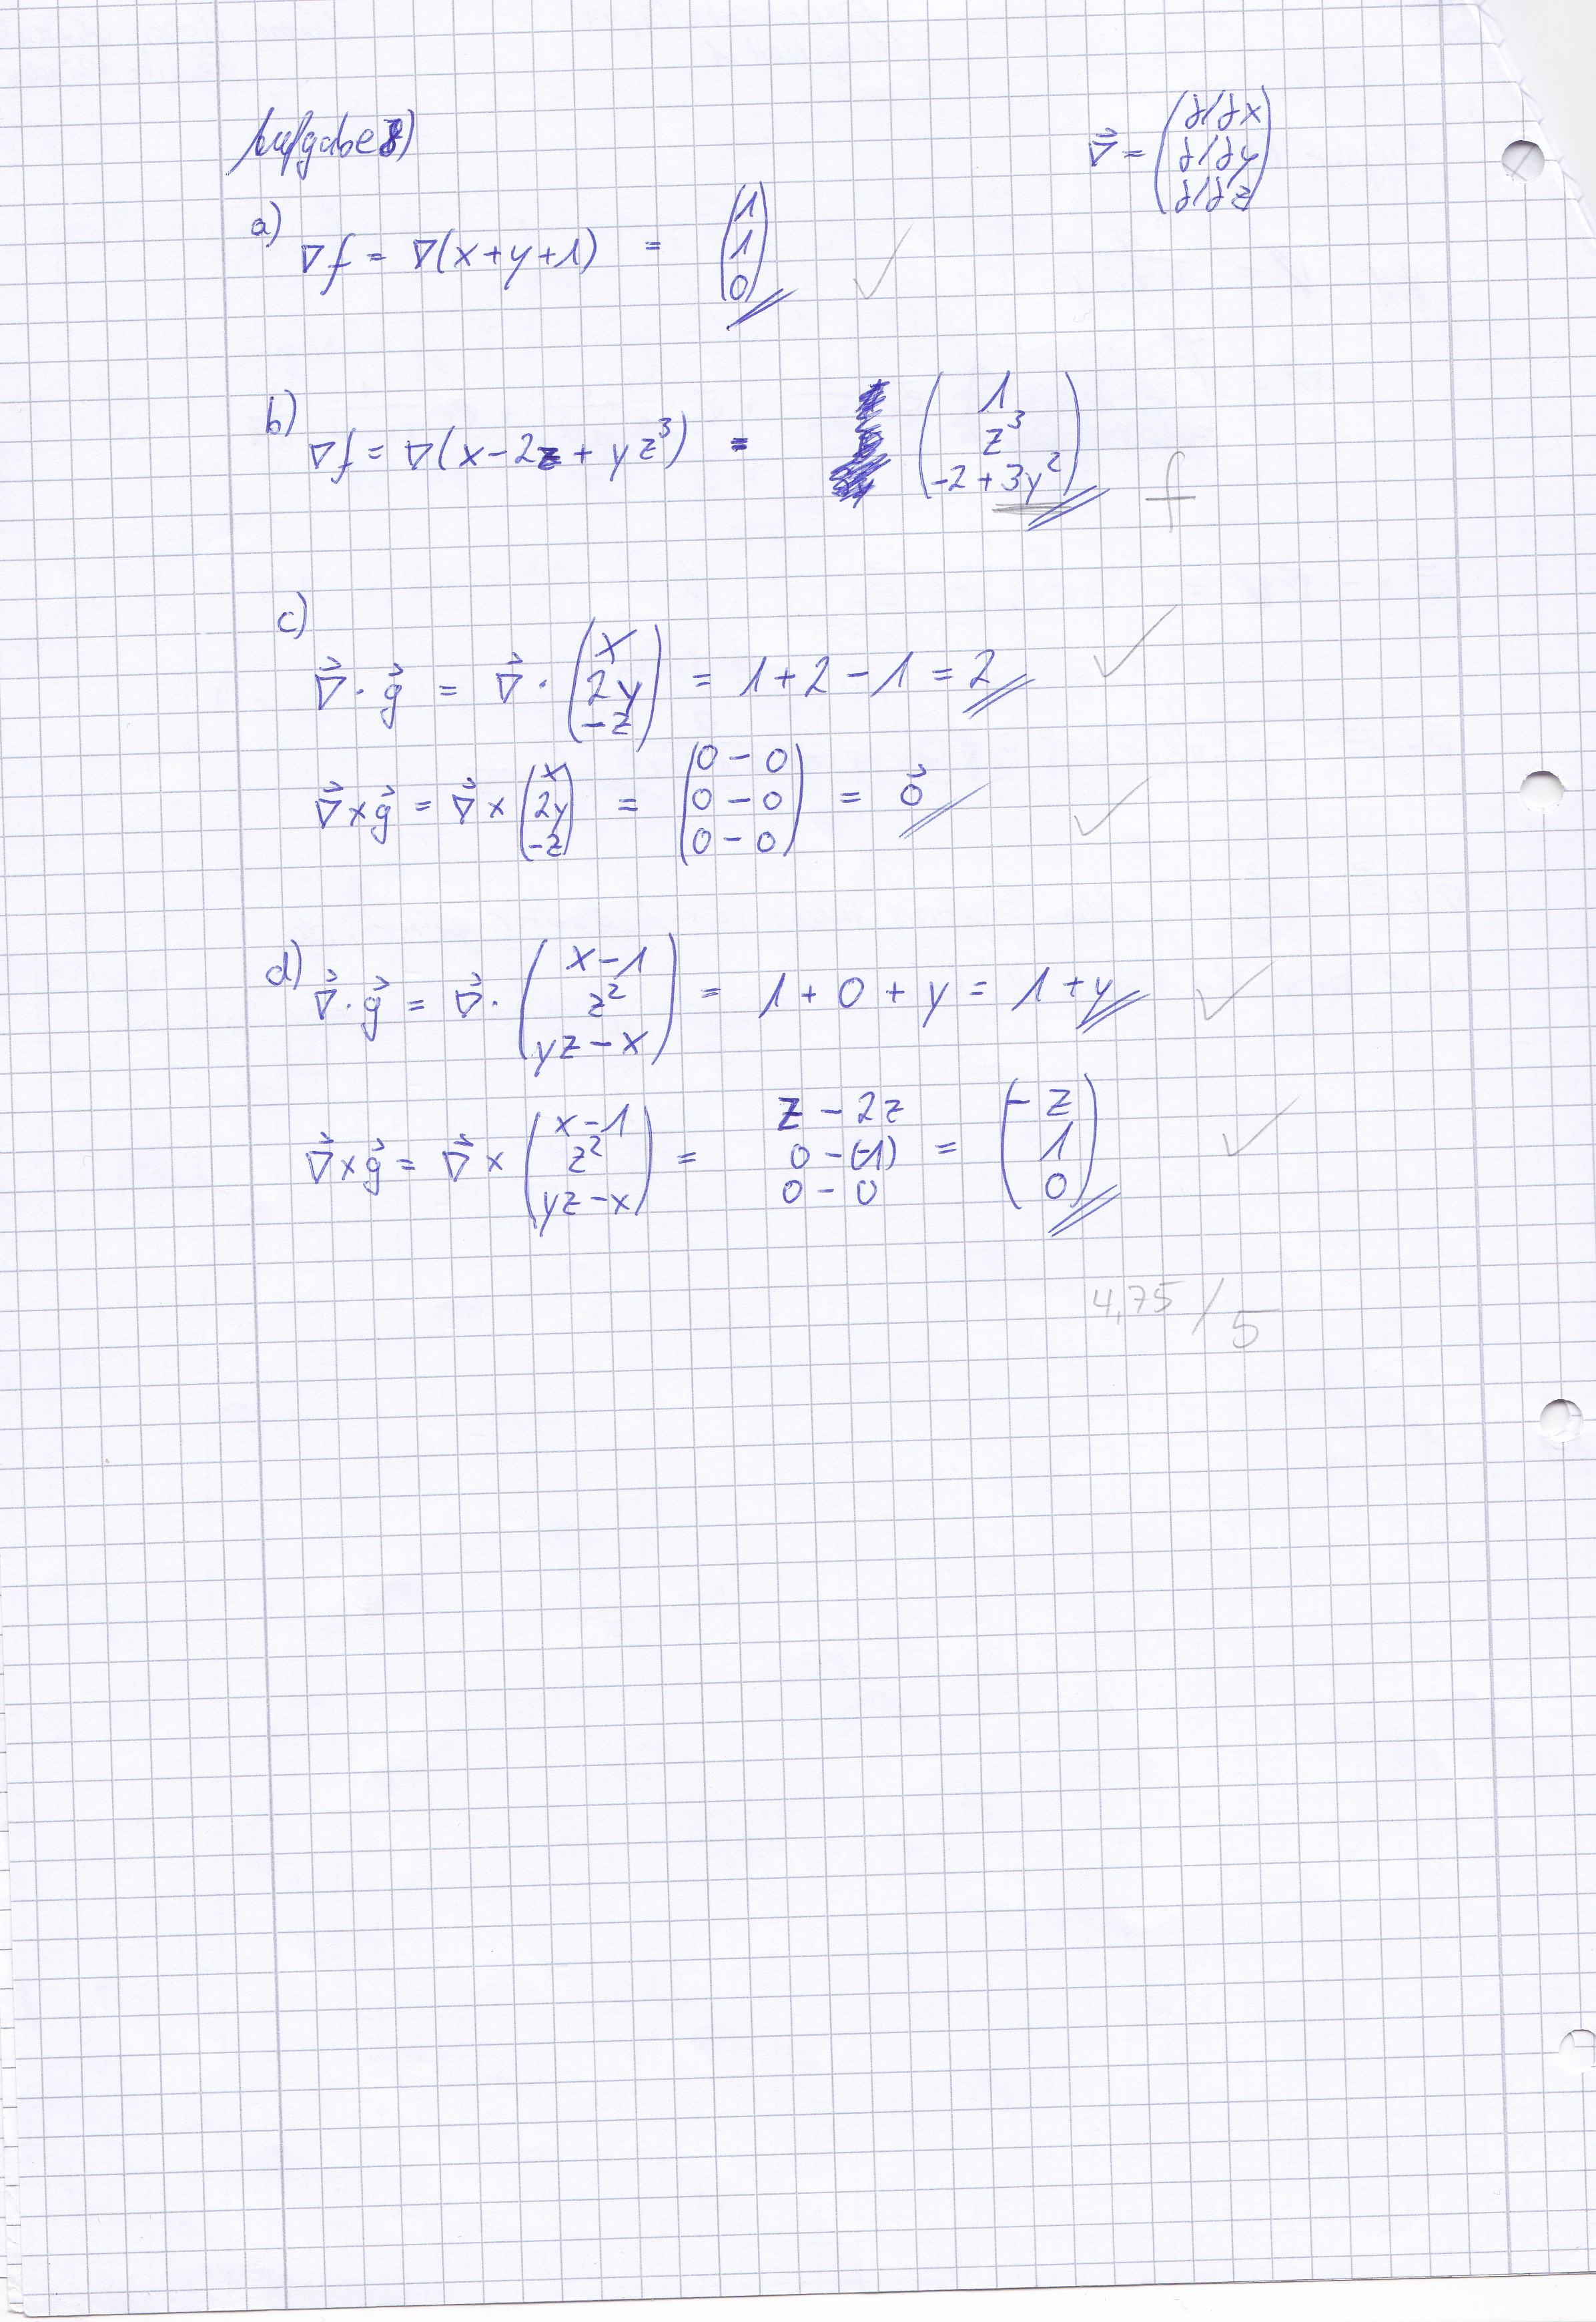 Aufgabe 8)
∇⃗ = (∂/∂x
∂/∂y
∂/∂z)
a) ∇f = ∇(x+y+1) = (1
1
0) ✓
b) ∇f = ∇(x-2z+yz³) = (1
z³
-2+3y²) f
c)
∇⃗·g⃗ = ∇⃗·(x
2y
-z) = 1+2-1 = 2 ✓
∇⃗×g⃗ = ∇⃗×(x
2y
-z) = (0-0
0-0
0-0) = 0⃗ ✓
d) ∇⃗·g⃗ = ∇⃗·(x-1
z²
yz-x) = 1+0+y = 1+y ✓
∇⃗×g⃗ = ∇⃗×(x-1
z²
yz-x) = z-2z
0-(-1)
0-0 = (-z
1
0) ✓
4,75/5